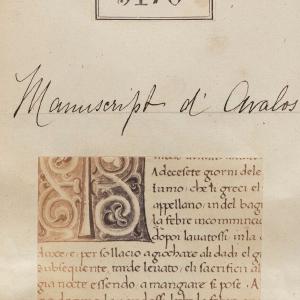 Manuscript d'Avalos
A decesete giorni dele
tumo, che ti greci el
appellano, in del bag
la febre incommincu
dopoi lauatossi in la
duce, e per sollacio a giochare ali dadi el g
subsequente, tarde leuato, eli sacrifici al
gia nocte essendo, a mangiare si pose. A